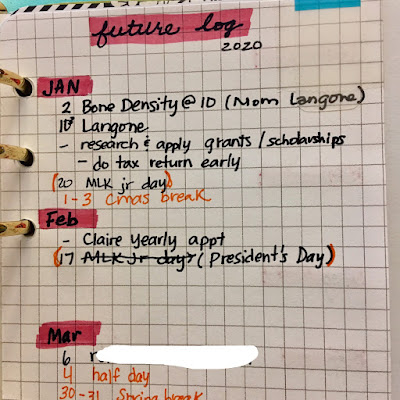 future log
2020
JAN
2 Bone Density @ 10 (Mom Langone)
10 Langone
- research & apply grants/scholarships
- do tax return early
(20 MLK jr day)
1-3 Cmas break
Feb
- Claire Yearly appt
(17 MLK Jr day (President's Day)
Mar
6
4 half day
30-31 Spring break